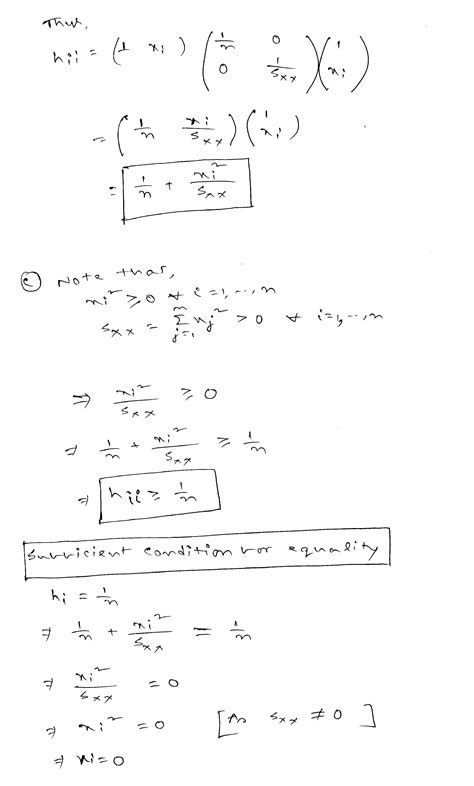 Thus,
hii = (1 xi) (1/n 0 0 1/Sxx) (1 xi)
= (1/n xi/Sxx) (1 xi)
= 1/n + xi²/Sxx
(c) Note that,
xi² ≥ 0 ∀ i=1,...,n
Sxx = Σ_{j=1}^{n} xj² > 0 ∀ i=1,...,n
⇒ xi²/Sxx ≥ 0
⇒ 1/n + xi²/Sxx ≥ 1/n
⇒ hii ≥ 1/n
Sufficient condition for equality
hi = 1/n
⇒ 1/n + xi²/Sxx = 1/n
⇒ xi²/Sxx = 0
⇒ xi² = 0 [As Sxx ≠ 0]
⇒ xi = 0